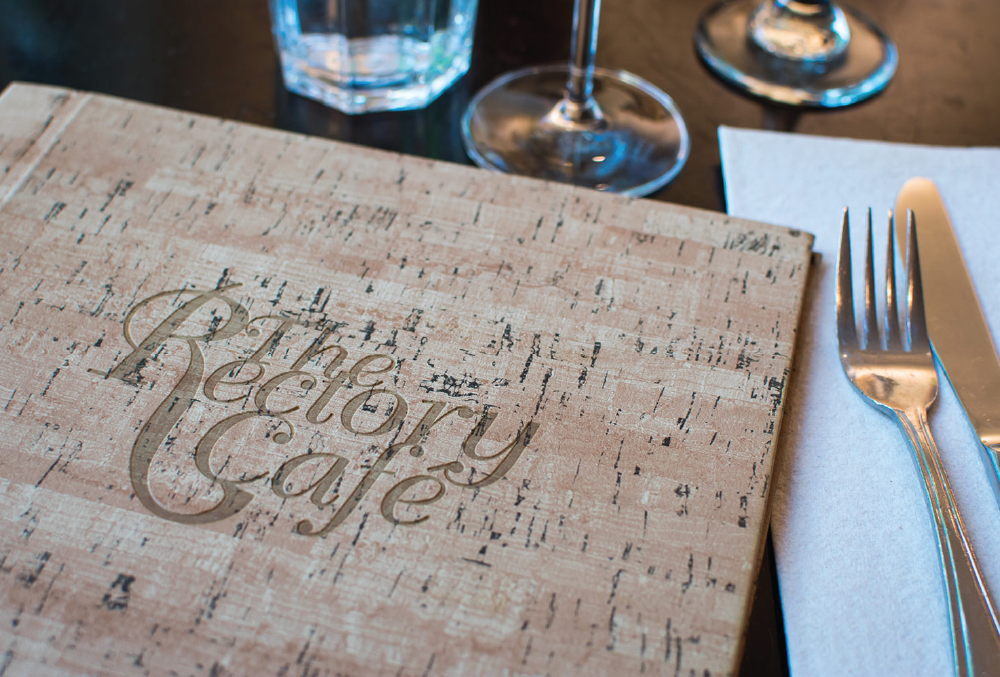 The
Rectory
Café